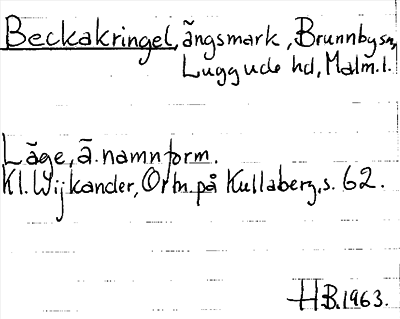 Beckakringel, ängsmark, Brunnby sn,
Luggude hd, Malm. l.
Läge, ä. namnform.
Kl. Wijkander, Ortn. på Kullaberg, s. 62.
HB. 1963.